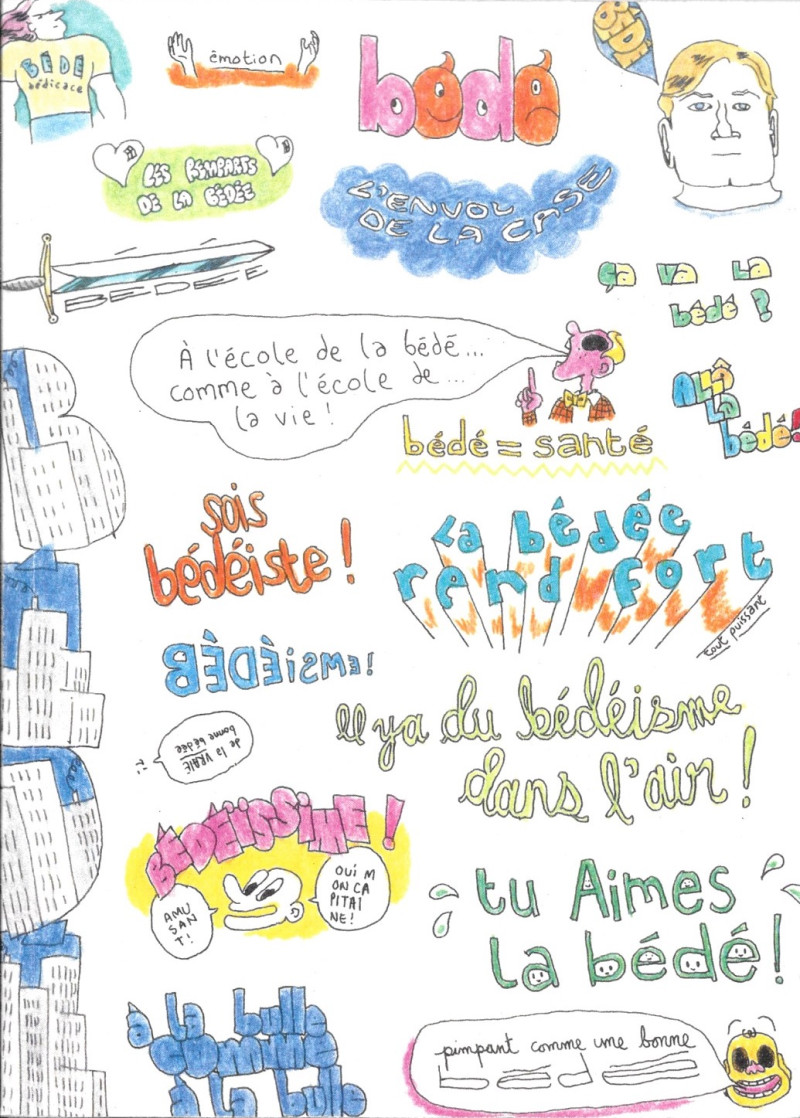 BÉDÉ
bédicace
émotion
bédé
BIDE
LES REMPARTS
DE LA BÉDÉE
L'ENVOL
DE LA CASE
BÉDÉE
ça va la
bédé ?
À l'école de la bédé...
comme à l'école de...
la vie !
bédé = santé
ALLÔ
La
bédé!
sois
bédéiste !
La bédée
rend fort
tout puissant
BÉDÉisme!
il y a du bédéisme
dans l'air !
de la VRAIE
bonne bédée
BÉDÉÏSSIME !
AMU
SAN
T!
OUI M
ON CA
PITAI
NE!
tu Aimes
la bédé!
à la bulle
comme
à la bulle
pimpant comme une bonne
bédé
BÉDÉ